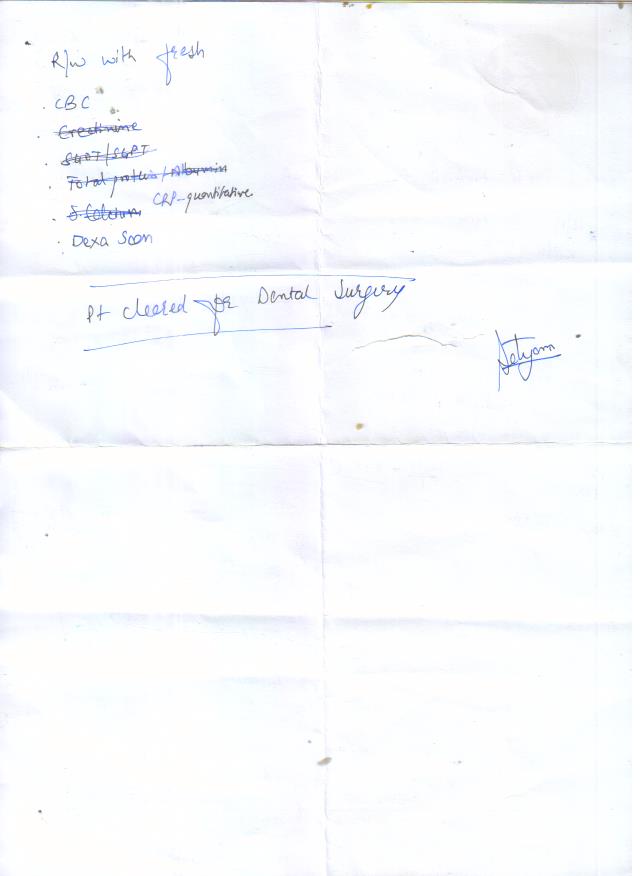 R/w with fresh
. CBC
. Creatinine
. SGOT/SGPT
. Total protein/Albumin
. S. Calcium CRP-quantitative
. Dexa Scan
Pt cleared for Dental Surgery